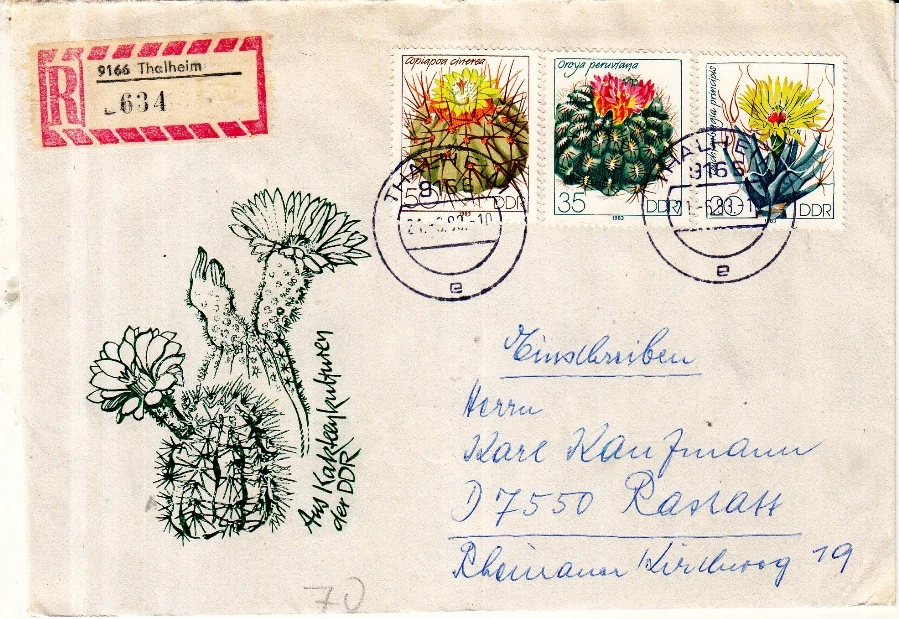 R
9166 Thalheim
634
Copiapoa cinerea
50
DDR
Oroya peruviana
35
DDR
1983
principis
20
DDR
THALHEIM
9166
21.-6.83.-10
e
THALHEIM
9166
21.-6.83.-1
e
Einschreiben
Herrn
Karl Kaufmann
D 7550 Rastatt
Rheinauer Kirchweg 19
Aus Kakteenkulturen
der DDR
70